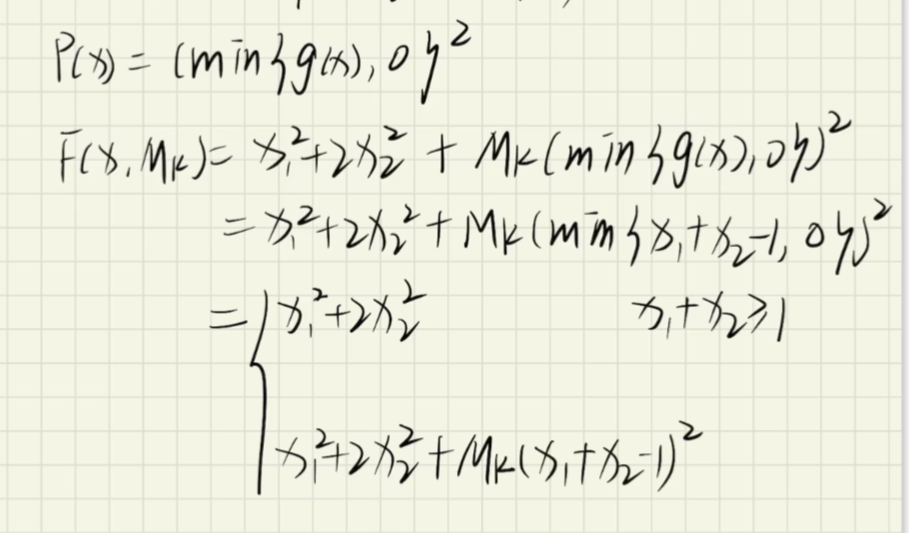 P(x) = (min{g(x), 0}²
F(x, Mk) = x₁² + 2x₂² + Mk(min{g(x), 0})²
= x₁² + 2x₂² + Mk(min{x₁ + x₂ - 1, 0})²
= { x₁² + 2x₂² x₁ + x₂ ≥ 1
x₁² + 2x₂² + Mk(x₁ + x₂ - 1)²